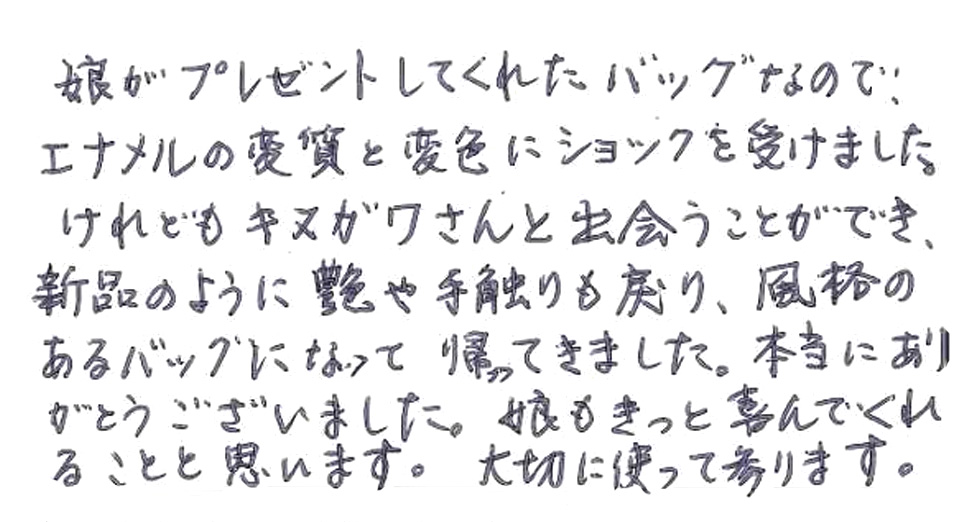 娘がプレゼントしてくれたバッグなので、
エナメルの変質と変色にショックを受けました。
けれどもキヌガワさんと出会うことができ、
新品のように艶や手触りも戻り、風格の
あるバッグになって帰ってきました。本当にあり
がとうございました。娘もきっと喜んでくれ
ることと思います。大切に使って参ります。